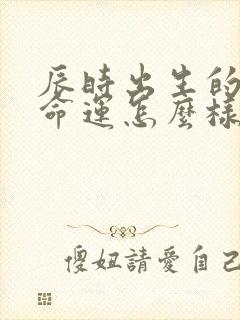 辰時出生的
命運怎麼樣
傻妞請愛自己